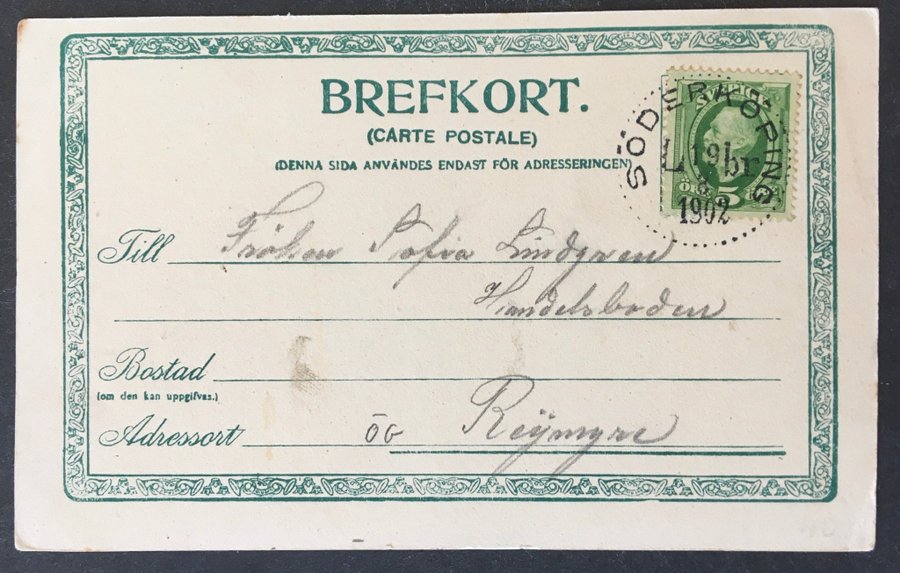 BREFKORT.
(CARTE POSTALE)
(DENNA SIDA ANVÄNDES ENDAST FÖR ADRESSERINGEN)
SÖDERKÖPING
19
1902
ÖRE
Till Fröken Sofia Lindgren
Handelsboden
Bostad
(om den kan uppgifvas.)
Adressort ÖG Reijmyre